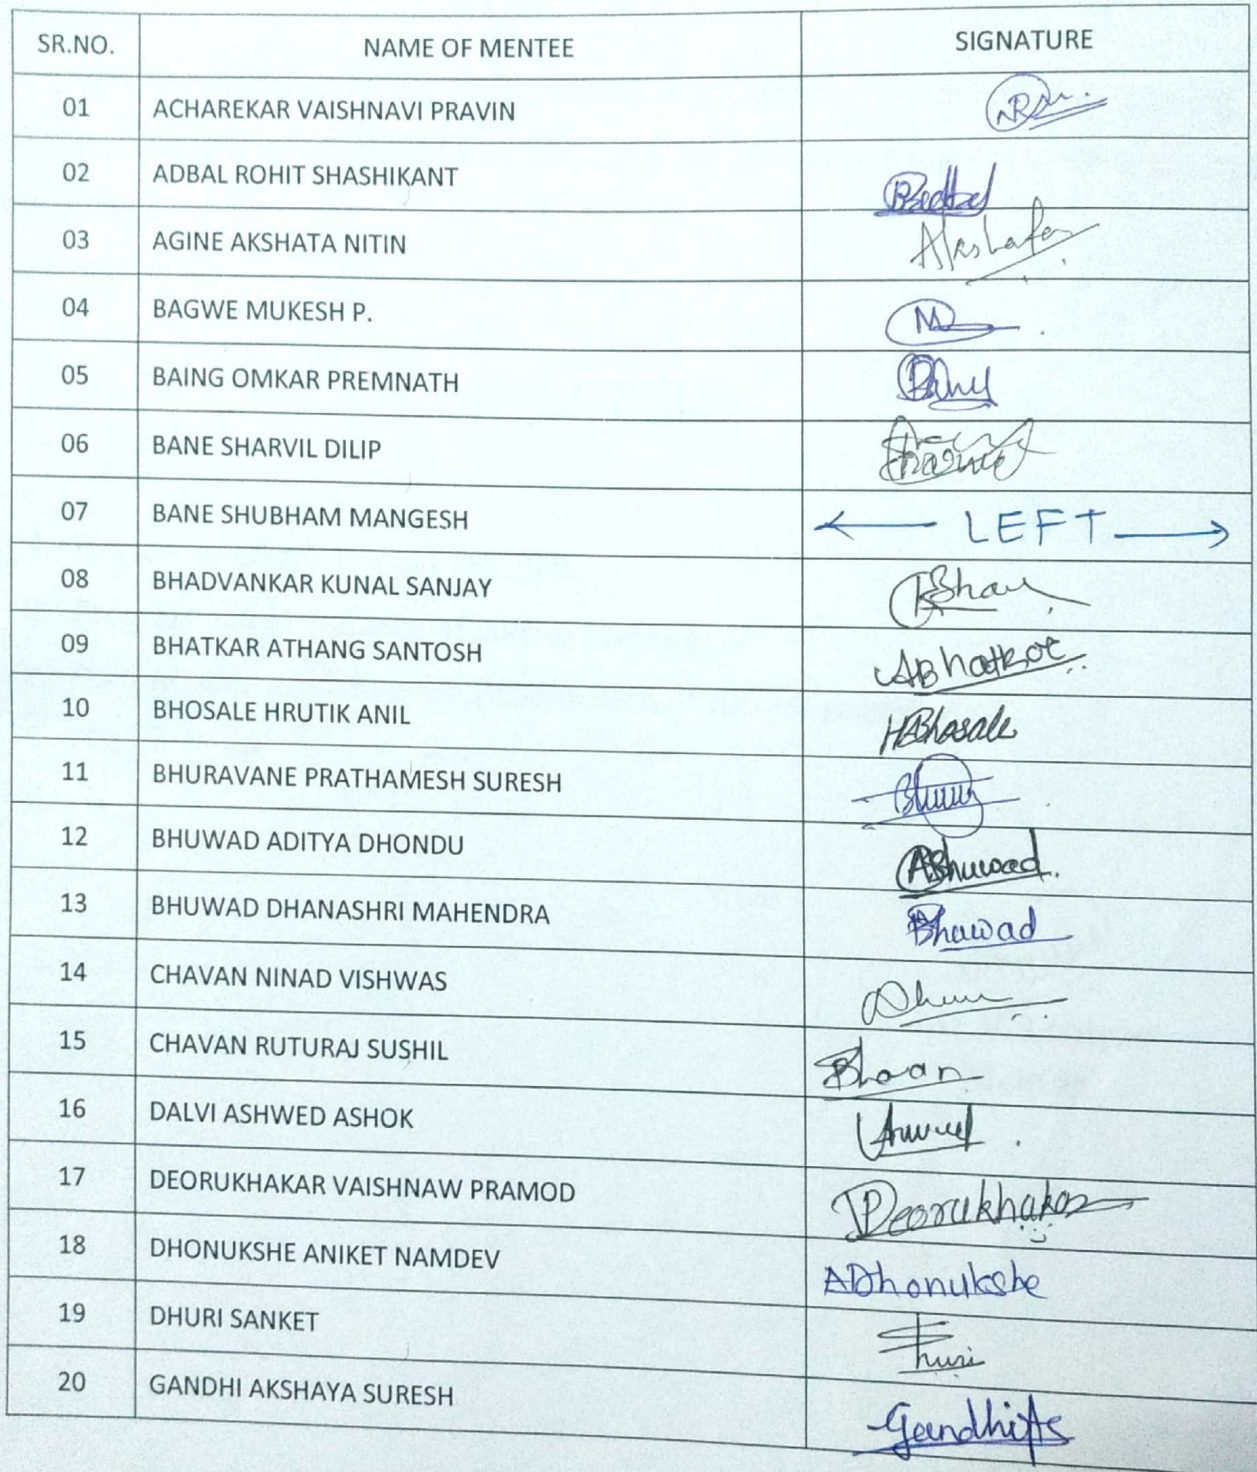 SR.NO. NAME OF MENTEE SIGNATURE
01 ACHAREKAR VAISHNAVI PRAVIN
02 ADBAL ROHIT SHASHIKANT
03 AGINE AKSHATA NITIN Akshata
04 BAGWE MUKESH P.
05 BAING OMKAR PREMNATH
06 BANE SHARVIL DILIP
07 BANE SHUBHAM MANGESH ← LEFT →
08 BHADVANKAR KUNAL SANJAY
09 BHATKAR ATHANG SANTOSH ABhatkar
10 BHOSALE HRUTIK ANIL HBhosale
11 BHURAVANE PRATHAMESH SURESH
12 BHUWAD ADITYA DHONDU ABhuwad.
13 BHUWAD DHANASHRI MAHENDRA Bhuwad
14 CHAVAN NINAD VISHWAS
15 CHAVAN RUTURAJ SUSHIL
16 DALVI ASHWED ASHOK
17 DEORUKHAKAR VAISHNAW PRAMOD VDeorukhakar
18 DHONUKSHE ANIKET NAMDEV ADhonukshe
19 DHURI SANKET
20 GANDHI AKSHAYA SURESH GandhiAS